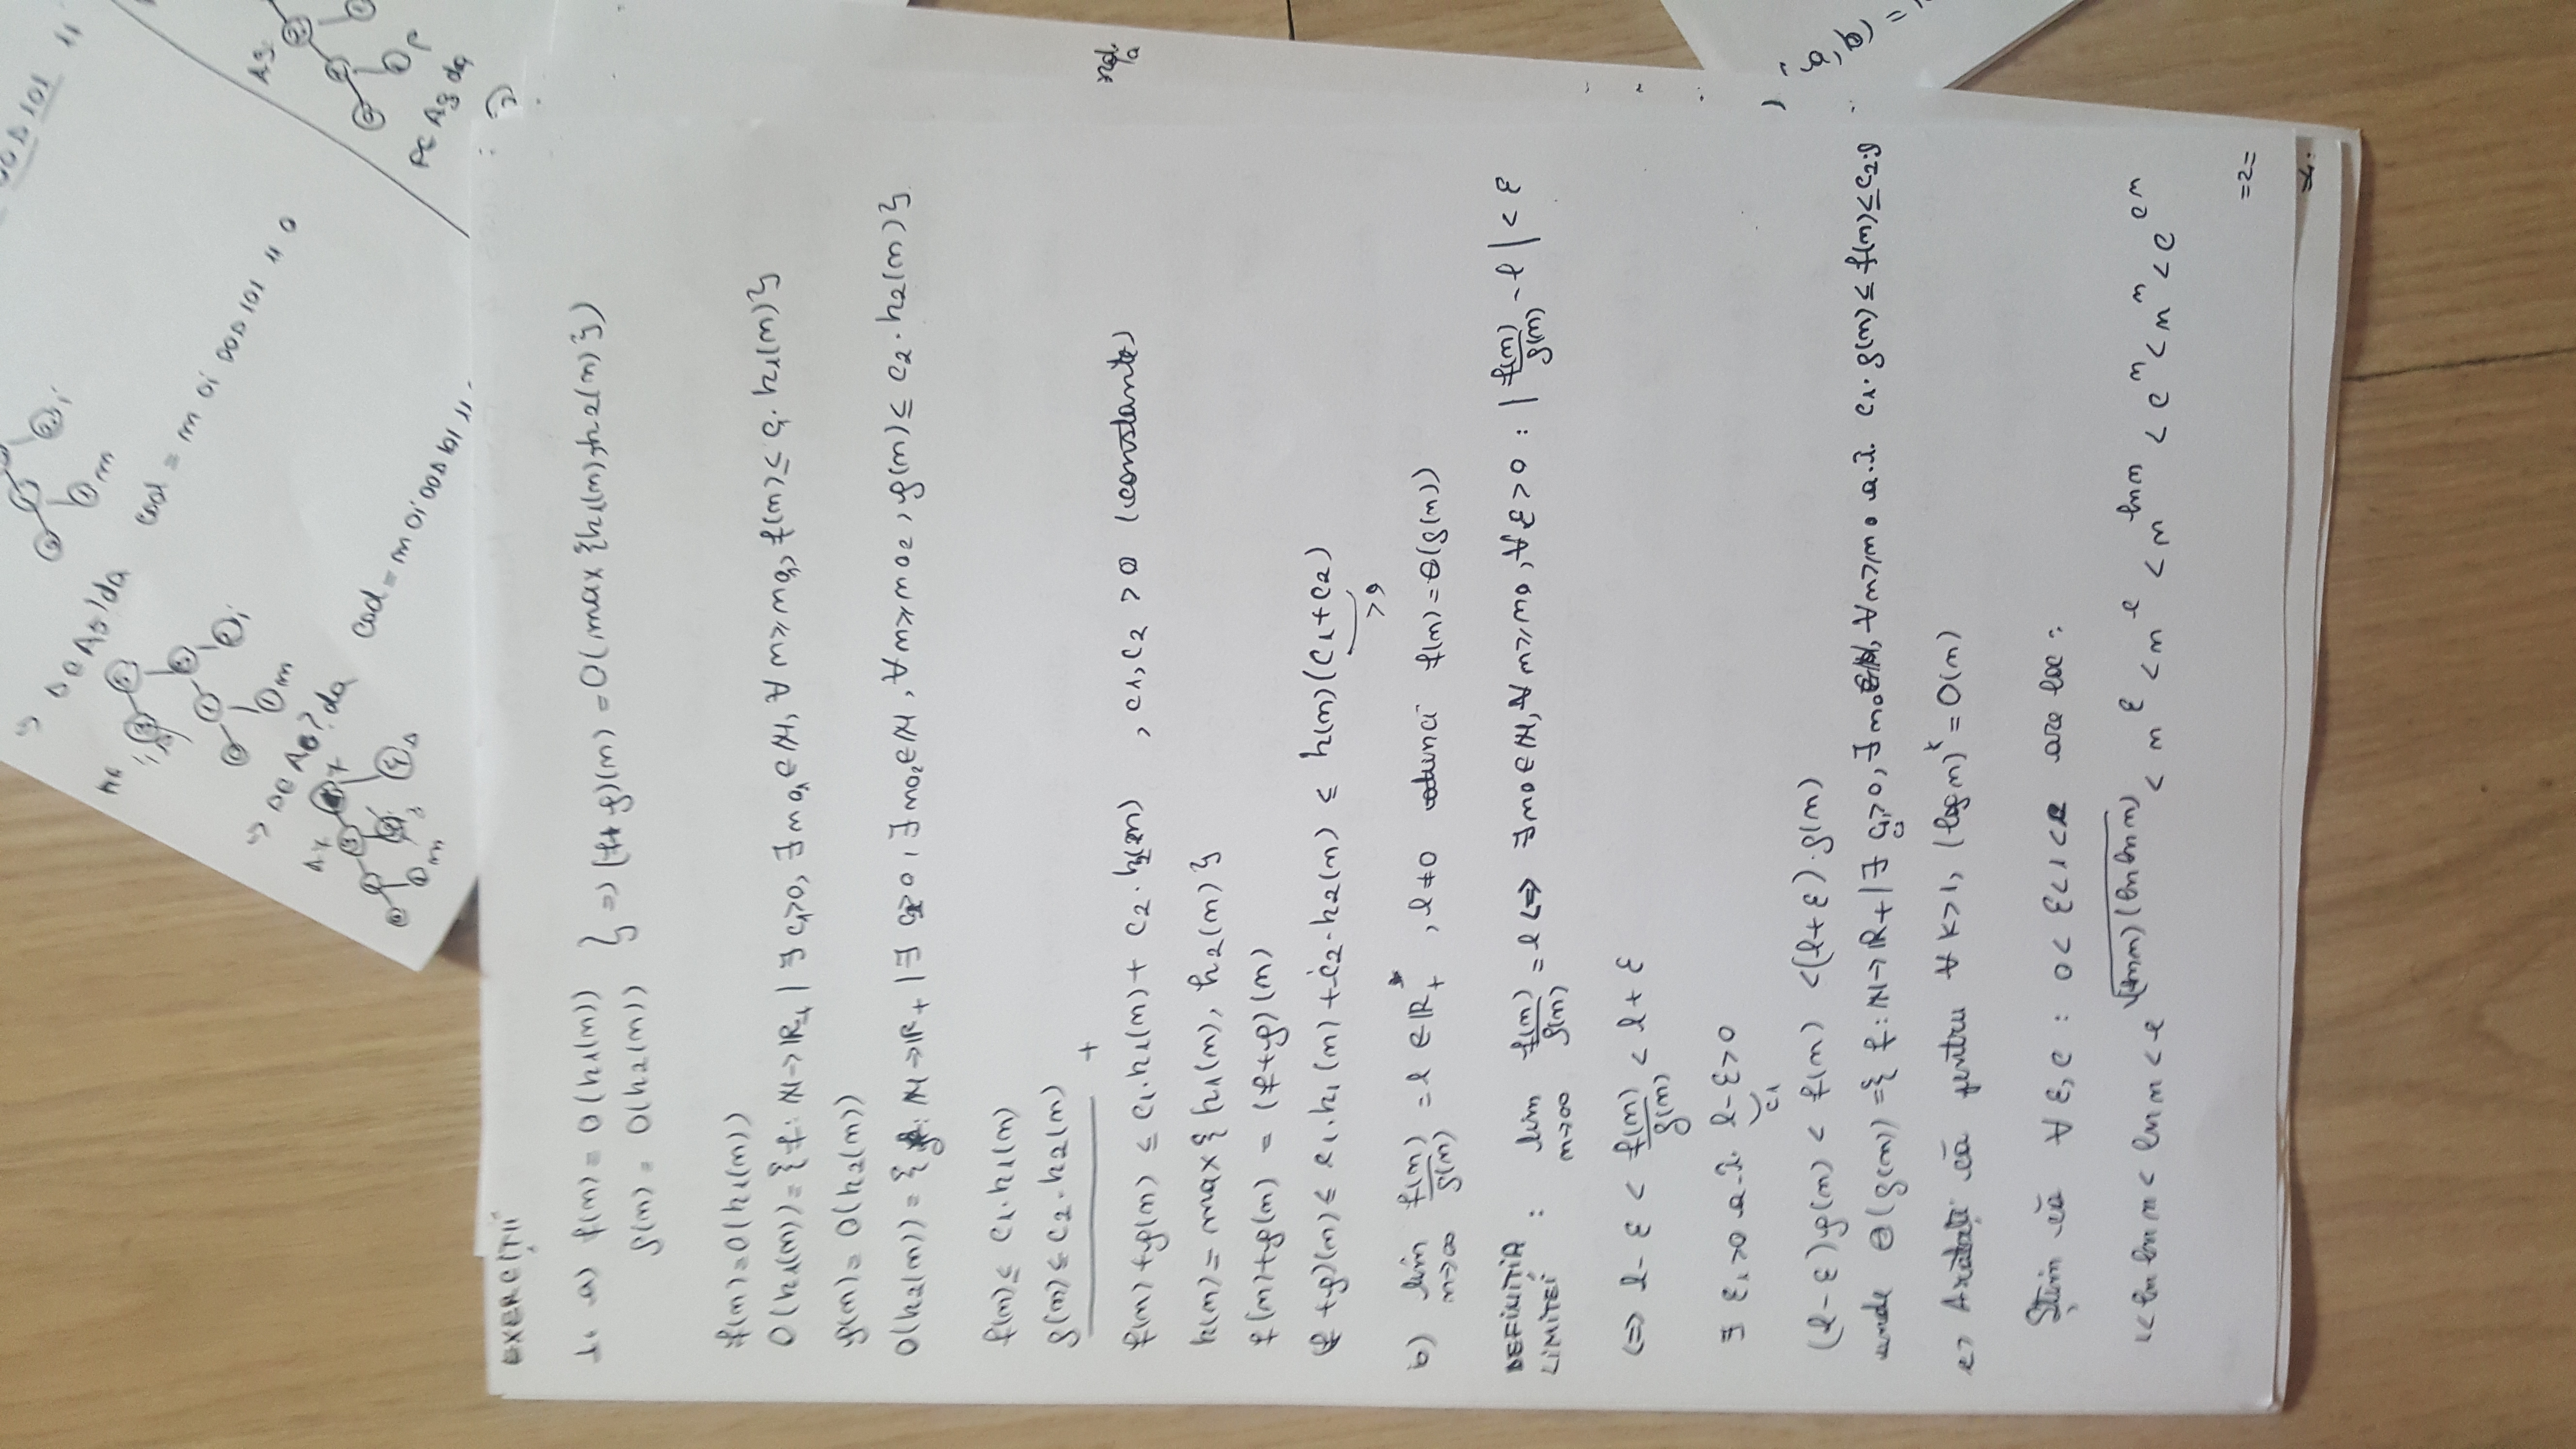 Δ ∈ A5? da
cod = m 0i 00Δ 101 11 0
Δ ∈ A6? da
cod = m 0i 00Δ 101 11
A5
p ∈ A3 da
EXERCIȚII
1. a) f(n) = O(h1(n))
g(n) = O(h2(n)) } => (f+g)(n) = O(max{h1(n), h2(n)})
f(n) = O(h1(n))
O(h1(n)) = {f: N -> R+ | ∃ c1>0, ∃ n01 ∈ N, ∀ n ≥ n01, f(n) ≤ c1·h1(n)}
g(n) = O(h2(n))
O(h2(n)) = {g: N -> R+ | ∃ c2>0, ∃ n02 ∈ N, ∀ n ≥ n02, g(n) ≤ c2·h2(n)}
f(n) ≤ c1·h1(n)
g(n) ≤ c2·h2(n)
+
f(n)+g(n) ≤ c1·h1(n) + c2·h2(n) , c1, c2 > 0 (constante)
h(n) = max{h1(n), h2(n)}
f(n)+g(n) = (f+g)(n)
(f+g)(n) ≤ c1·h1(n) + c2·h2(n) ≤ h(n)(c1+c2)
>0
b) lim n->∞ f(n)/g(n) = l ∈ R+* , l ≠ 0 atunci f(n) = Θ(g(n))
DEFINIȚIA LIMITEI : lim n->∞ f(n)/g(n) = l <=> ∃ n0 ∈ N, ∀ n ≥ n0, ∀ ε > 0 : | f(n)/g(n) - l | < ε
<=> l - ε < f(n)/g(n) < l + ε
∃ ε1 > 0 a.î. l - ε > 0
c1
(l-ε)g(n) < f(n) < (l+ε)·g(n)
unde Θ(g(n)) = {f: N -> R+ | ∃ c1>0, ∃ n0 ∈ N, ∀ n ≥ n0 a.î. c1·g(n) ≤ f(n) ≤ c2·g
c) Arătați că pentru ∀ k>1, (log n)^k = O(n)
Știm că ∀ ε, c : 0 < ε < 1 < c are loc :
1 < ln ln n < ln n < e^√((ln n)(ln ln n)) < n^ε < n^c < n^ln n < c^n < n^n < c^c^n
=2=